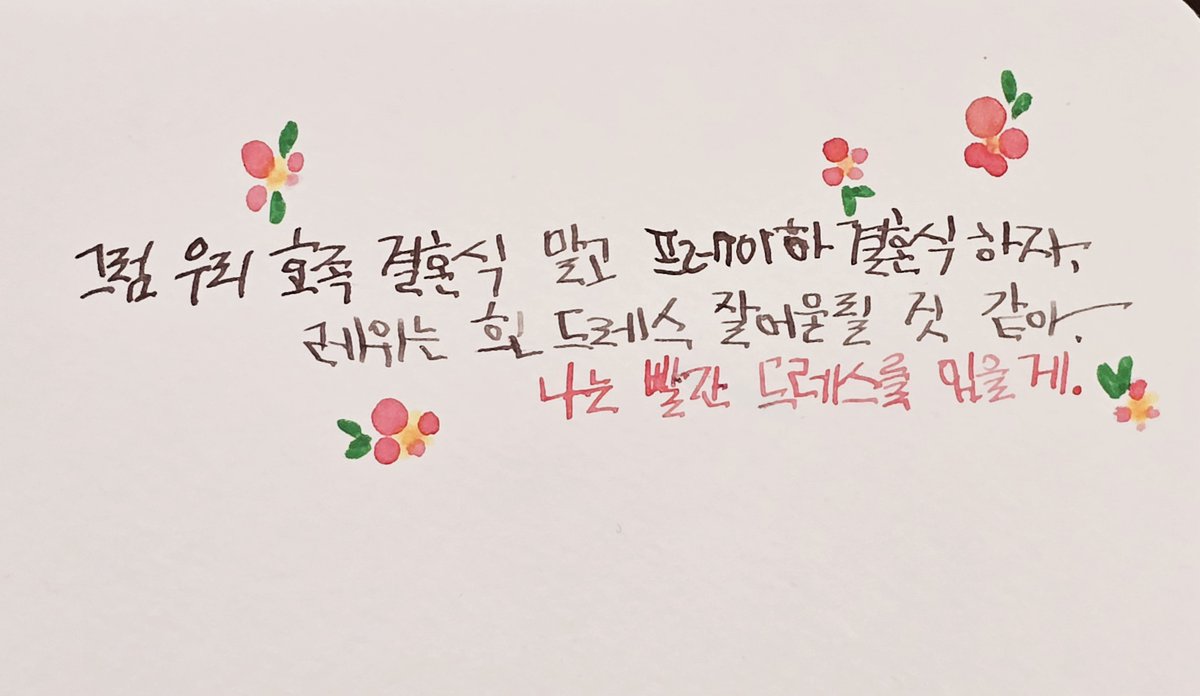 그럼 우리 호족 결혼식 말고 프레이하 결혼식 하자.
레위는 흰 드레스 잘어울릴 것 같아.
나는 빨간 드레스를 입을게.